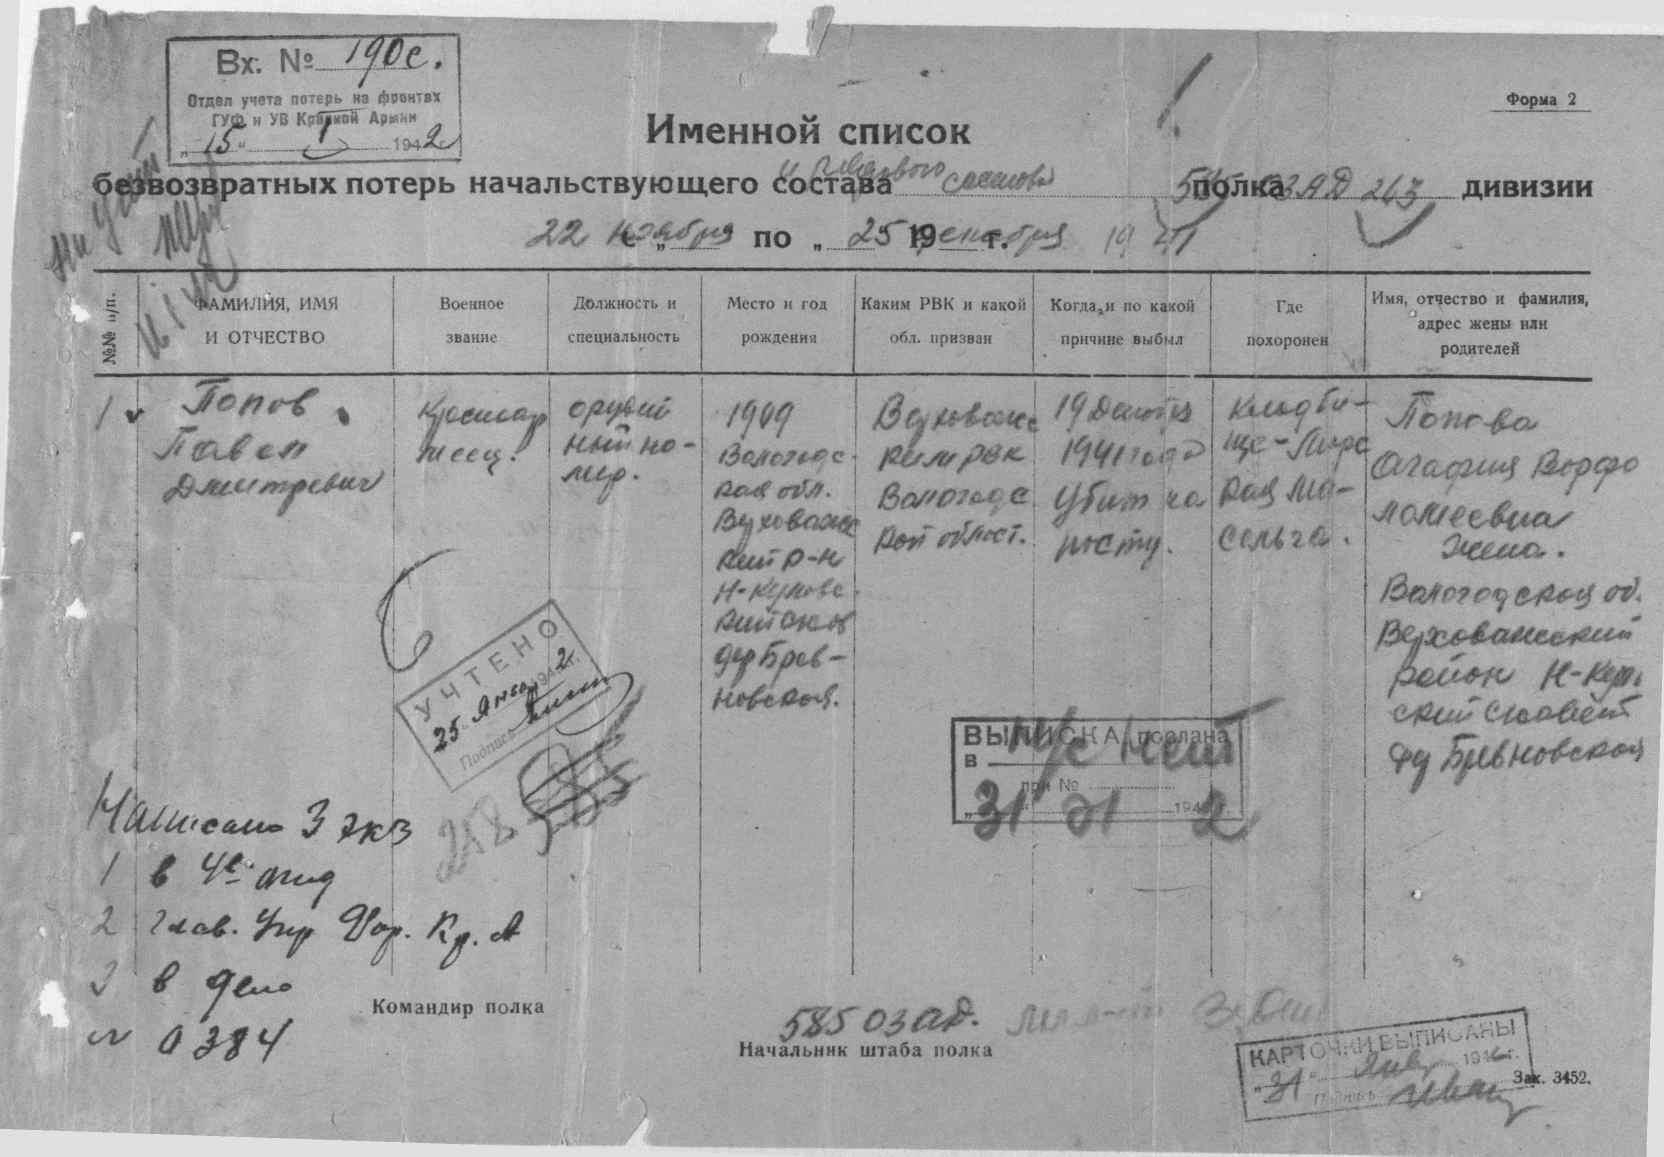 Вх. № 190с.
Отдел учета потерь на фронтах
ГУФ и УВ Красной Армии
„15“ 1 1942
Форма 2
Именной список
безвозвратных потерь начальствующего состава и рядового состава 585 полка ОЗАД 263 дивизии
22 ноября по „ 25 декабря 1941 г.
№№ п/п.
ФАМИЛИЯ, ИМЯ
И ОТЧЕСТВО
Военное
звание
Должность и
специальность
Место и год
рождения
Каким РВК и какой
обл. призван
Когда и по какой
причине выбыл
Где
похоронен
Имя, отчество и фамилия,
адрес жены или
родителей
1
Попов
Павел
Дмитревич
Красноар
меец.
орудий
ный но-
мер.
1909
Вологодс-
кая обл.
Верховажс
кий р-н
Н-Кулойс
кий
дер Брев-
новская.
Верховажс
ким РВК
Вологодс
кой област.
19 декабря
1941 года
Убит на
посту.
Кладби-
ще - Лирс
кая Ма-
сельга.
Попова
Агафия Ворфо
ломеевна
жена.
Вологодская об.
Верховажский
район Н-Кул
ский сковет
дер Бревновская
УЧТЕНО
25 Янв 1942 г.
Подпись
ВЫПИСКА послана
в
при №
„31 01 1942
Написано 3 экз
1 в 4е отд
2 Глав. Упр Фор. Кр. А
3 в дело
N 0384
Командир полка
585 ОЗАД.
Начальник штаба полка
КАРТОЧКИ ВЫПИСАНЫ
„31“ Янв 1942 г.
Подпись
Зак. 3452.